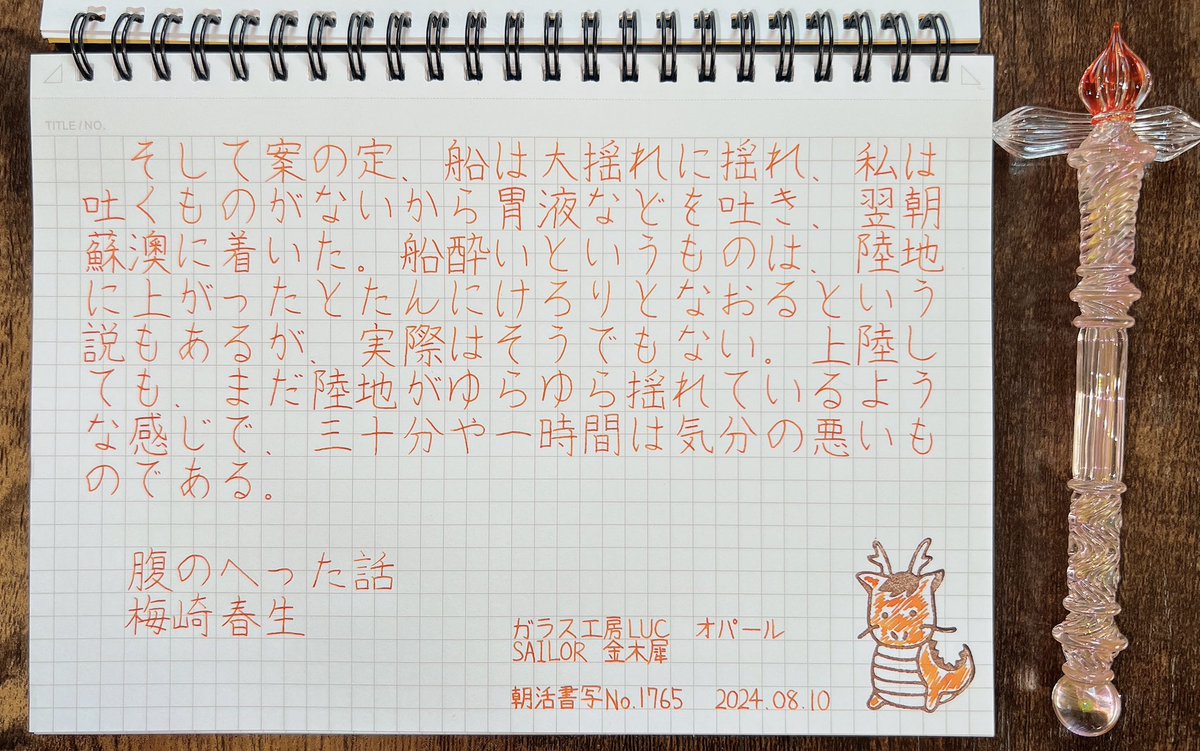 TITLE / NO.
そして案の定、船は大揺れに揺れ、私は
吐くものがないから胃液などを吐き、翌朝
蘇澳に着いた。船酔いというものは、陸地
に上がったとたんにけろりとなおるという
説もあるが、実際はそうでもない。上陸し
ても、まだ陸地がゆらゆら揺れているよう
な感じで、三十分や一時間は気分の悪いも
のである。
腹のへった話
梅崎春生
ガラス工房LUC オパール
SAILOR 金木犀
朝活書写No.1765 2024.08.10